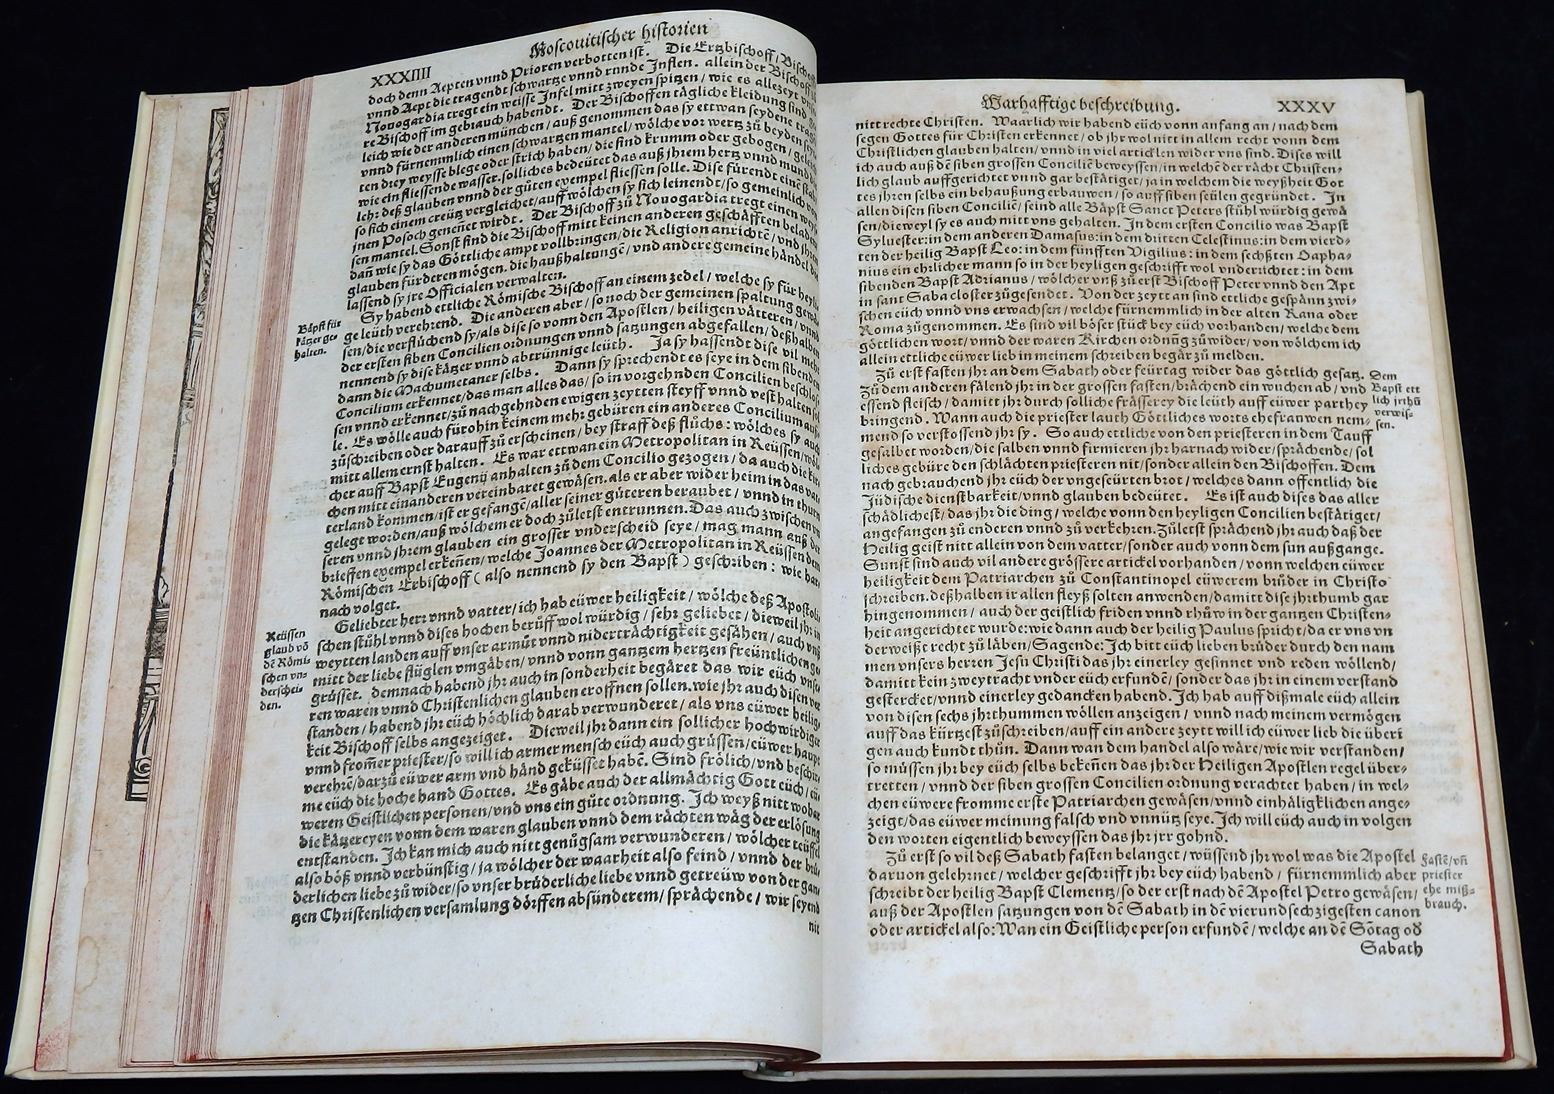 XXXIIII
Moscouitischer historien
doch denn Aepten vnnd Prioren verbotten ist. Die Ertzbischoff/ Bischoff
vnnd Aept die tragendt schwartze vnnd runde Inflen. allein der Bischoff
Nouogardia tregt ein weisse Insel mitt zweyen spitzen/ wie es allezeyt
re Bischoff im gebrauch habendt. Der Bischoffen tägliche kleidung sind
leich wie der anderen münchen/ außgenommen das sy ettwan seydene
vnnd fürnemmlich einen schwartzen mantel/ wölche vorwertz zů beyden
ten drey weysse blege oder strich haben/ die sind krumm oder gebogen/
wie ein fliessende wasser. solliches bedeütet das auß jhrem hertz vnnd mund
lehr deß glauben vnnd der gůten exempel fliessen solle. Dise fürendt eine
so sich einem creütz vergleichet/ auff wölchen sy sich leinendt/ so gemeinlich von
jnen Posoch genennet wirdt. Der Bischoff zů Nouogardia tregt einen
sen mantel. Sonst sind die Bischoff mitt keinen anderen geschäfften beladen
dann wie sy das Göttliche ampt vollbringen/ die Religion anrichtē/ vnd jhren
glauben fürderen mögen. die haußhaltunge/ vnd andere gemeine händel
lassend sy jre Officialen verwalten.
Sy habend ettliche Römische Bischoff an einem zedel/ welche sy für
Bäpst für
kätzer ge-
halten.
ge leüth verehrend. Die anderen aber/ so noch der gemeinen spaltung
sen/ die verflüchend sy/ als dise so vonn den Apostlen/ heiligen vätteren/ vnnd
der ersten siben Concilien ordnungen vnnd satzungen abgefallen/ deßhalben
nennend sy dise kätzer vnnd abtrünnige leüth. Ja sy hassendt dise vil mehr
dann die Machumetaner selbs. Dann sy sprechendt es seye in dem sibenden
Concilium erkennet/ das man alles das/ so in vorgehnden Concilien
sen vnnd erkennet/ zů nachgehnden ewigen zeytten steyff vnnd vest halten
le. Es wölle auch fürohin keinem mehr gebüren ein anderes Concilium
zůschreiben oder darauff zů erscheinen/ bey straff deß flůchs: wölches sy auch
mitt allem ernst halten. Es war ettwan ein Metropolitan in Reüssen/
cher auff Bapst Eugenij anhalten zů dem Concilio gezogen/ da auch die
chen mitt einanderen vereinbaret gewäsen. als er aber wider heim in das vat
terland kommen/ ist er gefangē/ aller seiner güteren beraubet/ vnnd in thurn
gelegt worden/ auß wölchem er doch zůletst entrunnen. Das auch zwischen
seren vnnd jhrem glauben ein grosser vnderscheid seye/ mag mann auß
brieffen exempel erkeñen/ welche Joannes der Metropolitan in Reüssen dem
Römischen Ertzbischoff ( also nennend sy den Bapst ) geschriben: wie
nach volget.
Reüssen
glaub vō
dē Römi-
schen vn-
derschei-
den.
Geliebter herr vnnd vatter/ ich hab eüwer heiligkeit/ wölche deß Apostoli
schen stůhl vnnd dises hochen berůff wol würdig/ sehr geliebet/ dieweil jhr in
weytten landen auff vnser armůt vnnd niderträchtigkeit gesähen/ auch vns
mitt der liebe flüglen vmgäben/ vnnd vonn gantzem hertzen freüntlichen
grüsset. demnach habend jhr auch in sonderheit begäret das wir eüch
ren waren vnnd Christenlichen glauben eroffnen sollen. wie jhr auch disen
standen/ habend jhr eüch höchlich darab verwunderet/ als vns eüwer heilig-
keit Bischoff selbs angezeiget. Dieweil jhr dann ein sollicher hochwirdiger
vnnd from̃er priester/ so will ich armer mensch eüch auch grüssen/ eüwer haupt
verehrē/ darzů eüwer arm vnd händ geküsset habē. Sind frölich/ vnd beschir
me eüch die hoche hand Gottes. Es gäbe auch der allmächtig Gott eüch/
weren Geistlichen personen/ vnd vns ein gůte ordnung. Ich weyß nitt
die kätzereyen vonn dem waren glauben vnnd dem rächten wäg der erlösung
entstanden. Ich kan mich auch nitt genůgsam verwunderen/ wölcher teüffel
also böß vnnd verbünstig/ ja wölcher der waarheit also feind/ vnnd der
derlichen liebe zů wider/ so vnser brüderliche liebe vnnd getreüw von der
tzen Christenlichen versamlung dörffen absünderem/ sprächende/ wir seyend
nit
Warhafftige beschreibung.
XXXV
nitt rechte Christen. Waarlich wir habend eüch vonn anfang an/ nach dem
segen Gottes für Christen erkennet/ ob jhr wol nitt in allem recht vonn dem
Christlichen glauben halten/ vnnd in viel articklen wider vns sind. Dises will
ich auch auß dē siben grossen Conciliē beweyssen/ in welchē der rächt Christen-
lich glaub auffgerichtet vnnd gar bestätiget/ ja in welchem die weyßheit Got
tes jhren selbs ein behaußung erbauwen/ so auff siben seülen gegründet. In
allen disen siben Conciliē/ seind alle Bäpst Sanct Peters stůhl würdig gewä
sen/ dieweyl sy es auch mitt vns gehalten. In dem ersten Concilio was Bapst
Syluester: in dem anderen Damasus: in dem dritten Celestinus: in dem vierd-
ten der heilig Bapst Leo: in dem fünfften Vigilius: in dem sechßten Oapha-
nius ein ehrlicher mann so in der heyligen geschrifft wol vnderichtet: in dem
sibenden Bapst Adrianus/ wölcher vnß zů erst Bischoff Peter vnnd den Apt
in sant Saba closter zůgesendet. Von der zeyt an sind ettliche gespänn zwi-
schen eüch vnnd vns erwachsen/ welche fürnemmlich in der alten Rana oder
Roma zůgenommen. Es sind vil böser stück bey eüch vorhanden/ welche dem
göttlichen wort/ vnnd der waren Kirchen ordnūg zů wider/ von wölchem ich
allein ettliche eüwer lieb in meinem schreiben begär zů melden.
Zů erst fasten jhr an dem Sabath oder feürtag wider das göttlich gesatz.
Dem
Bapst ett
lich jrthū
verwis-
sen.
Zů dem anderen fälend jhr in der grossen fasten/ brächend ein wuchen ab/ vnd
essend fleisch/ damitt jhr durch solliche frässerey die leüth auff eüwer parthey
bringend. Wann auch die priester lauth Göttliches worts ehefranwen nem-
mend so verstossend jhr sy. So auch ettliche von den priesteren in dem Tauff
gesalbet worden/ die salben vnnd firmieren jhr harnach wider/ sprächende/ sol
liches gebüre den schlächten priesteren nit/ sonder allein den Bischoffen. Dem
nach gebrauchend jhr eüch der vngeseürten brot/ welches dann offentlich die
Jüdische dienstbarkeit/ vnnd glauben bedeütet. Es ist auch dises das aller
schädlichest/ das jhr die ding/ welche vonn den heyligen Concilien bestätiget/
angefangen zů enderen vnnd zů verkehren. Zůletst sprächend jhr auch daß der
Heilig geist nitt allein von dem vatter/ sonder auch vonn dem sun außgange.
Sunst sind auch vil andere grössere artickel vorhanden/ vonn welchen eüwer
heiligkeit dem Patriarchen zů Constantinopel eüwerem brůder in Christo
schreiben. deßhalben ir allen fleyß solten anwenden/ damitt dise jhrthumb gar
hingenommen/ auch der geistlich friden vnnd rhůw in der gantzen Christen-
heit angerichtet wurde: wie dann auch der heilig Paulus spricht/ da er vns vn
derweißt recht zů läben/ Sagende: Ich bitt eüch lieben brüder durch den nam
men vnsers herren Jesu Christi das jhr einerley gesinnet vnd reden wöllend/
damitt kein zweytracht vnder eüch erfundē/ sonder das jhr in einem verstand
gestercket/ vnnd einerley gedancken habend. Ich hab auff dißmale eüch allein
von disen sechs jhrthummen wöllen anzeigen/ vnnd nach meinem vermögen
auff das kürtzest zůschreiben/ auff ein andere zeytt will ich eüwer lieb die überi
gen auch kundt thůn. Dann wan dem handel also wäre/ wie wir verstanden/
so můssen jhr bey eüch selbs bekeñen das jhr der Heiligen Apostlen regel über-
tretten/ vnnd der siben grossen Concilien ordnung verachtet haben/ in wel-
chen eüwere fromme erste Patriarchen gewäsen/ vnnd einhäligklichen ange-
zeigt/ das eüwer meinung falsch vnd vnnütz seye. Ich will eüch auch in volgen
den worten eigentlich beweyssen das jhr jrr gohnd.
Zů erst so vil deß Sabath fasten belanget/ wüssend jhr wol was die Apostel
Fastē/ vñ
priester
ehe miß-
brauch.
daruon gelehrnet/ welcher geschrifft jhr bey eüch habend/ fürnemmlich aber
schreibt der heilig Bapst Clementz/ so der erst nach dē Apostel Petro gewäsen/
auß der Apostlen satzungen von dē Sabath in dē vierundsechzigesten canon
oder artickel also: Wan ein Geistliche person erfundē/ welche an dē Sōtag od
Sabath